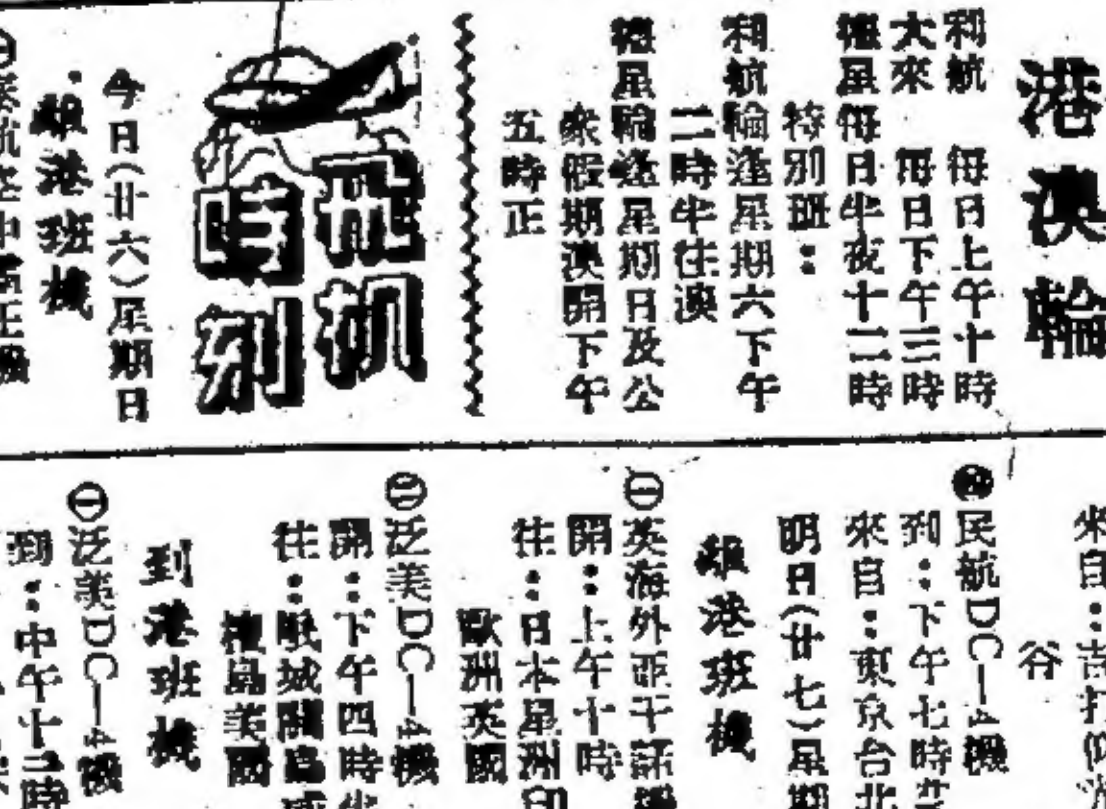 港澳輪
利航　每日上午十時
大來　每日下午三時
德星每日半夜十二時
特別班：
利航輪逢星期六下午
二時半往澳
德星輪逢星期日及公
衆假期澳開下午
五時正
飛机
時刻
今日（廿六）星期日
離港班機
來自：
谷
㊁民航DC—4機
到：下午七時
來自：東京台北
明日（廿七）星期
離港班機
㊀英海外亞干諾機
開：上午十時
往：日本星洲印
歐洲英國
㊁泛美DC—4機
開：下午四時半
往：
檀島美國
到港班機
㊀泛美DC—4機
到：中午十二時